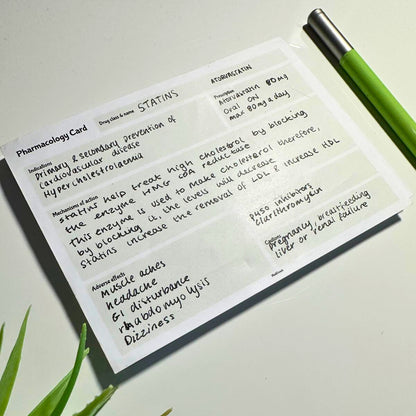 Pharmacology Card
Drug class & name
STATINS
ATORVASTATIN
Indications
Primary & secondary prevention of
cardiovascular disease
Hypercholestrolaemia
Prescription
Atorvastatin 80mg
Oral ON
max 80mg a day
Mechanisms of action
statins help treat high cholesterol by blocking
the enzyme HMG COA reductase
This enzyme is used to make cholesterol therefore,
by blocking it, the levels will decrease
Statins increase the removal of LDL & increase HDL
Adverse effects
Muscle aches
headache
GI disturbance
rhabdomyolysis
Dizziness
P450 inhibitors
Clarithromycin
Cautions
Pregnancy, breastfeeding
liver or renal failure